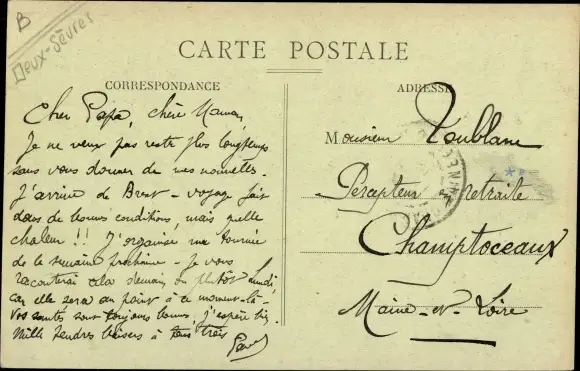 B
Deux-Sèvres
CARTE POSTALE
CORRESPONDANCE
ADRESSE
Cher Papa, chère Maman,
Je ne veux pas rester plus longtemps
sans vous donner de mes nouvelles.
J'arrive de Brest - voyage fait
dans de bonnes conditions, mais quelle
chaleur !! J'organise ma tournée
de la semaine prochaine - Je vous
raconterai cela demain ou plutôt lundi
car elle sera au point à ce moment-là -
Vos santés sont toujours bonnes, j'espère
Mille tendres baisers à tous trois
Monsieur Toublanc
Percepteur en retraite
Champtoceaux
Maine-et-Loire